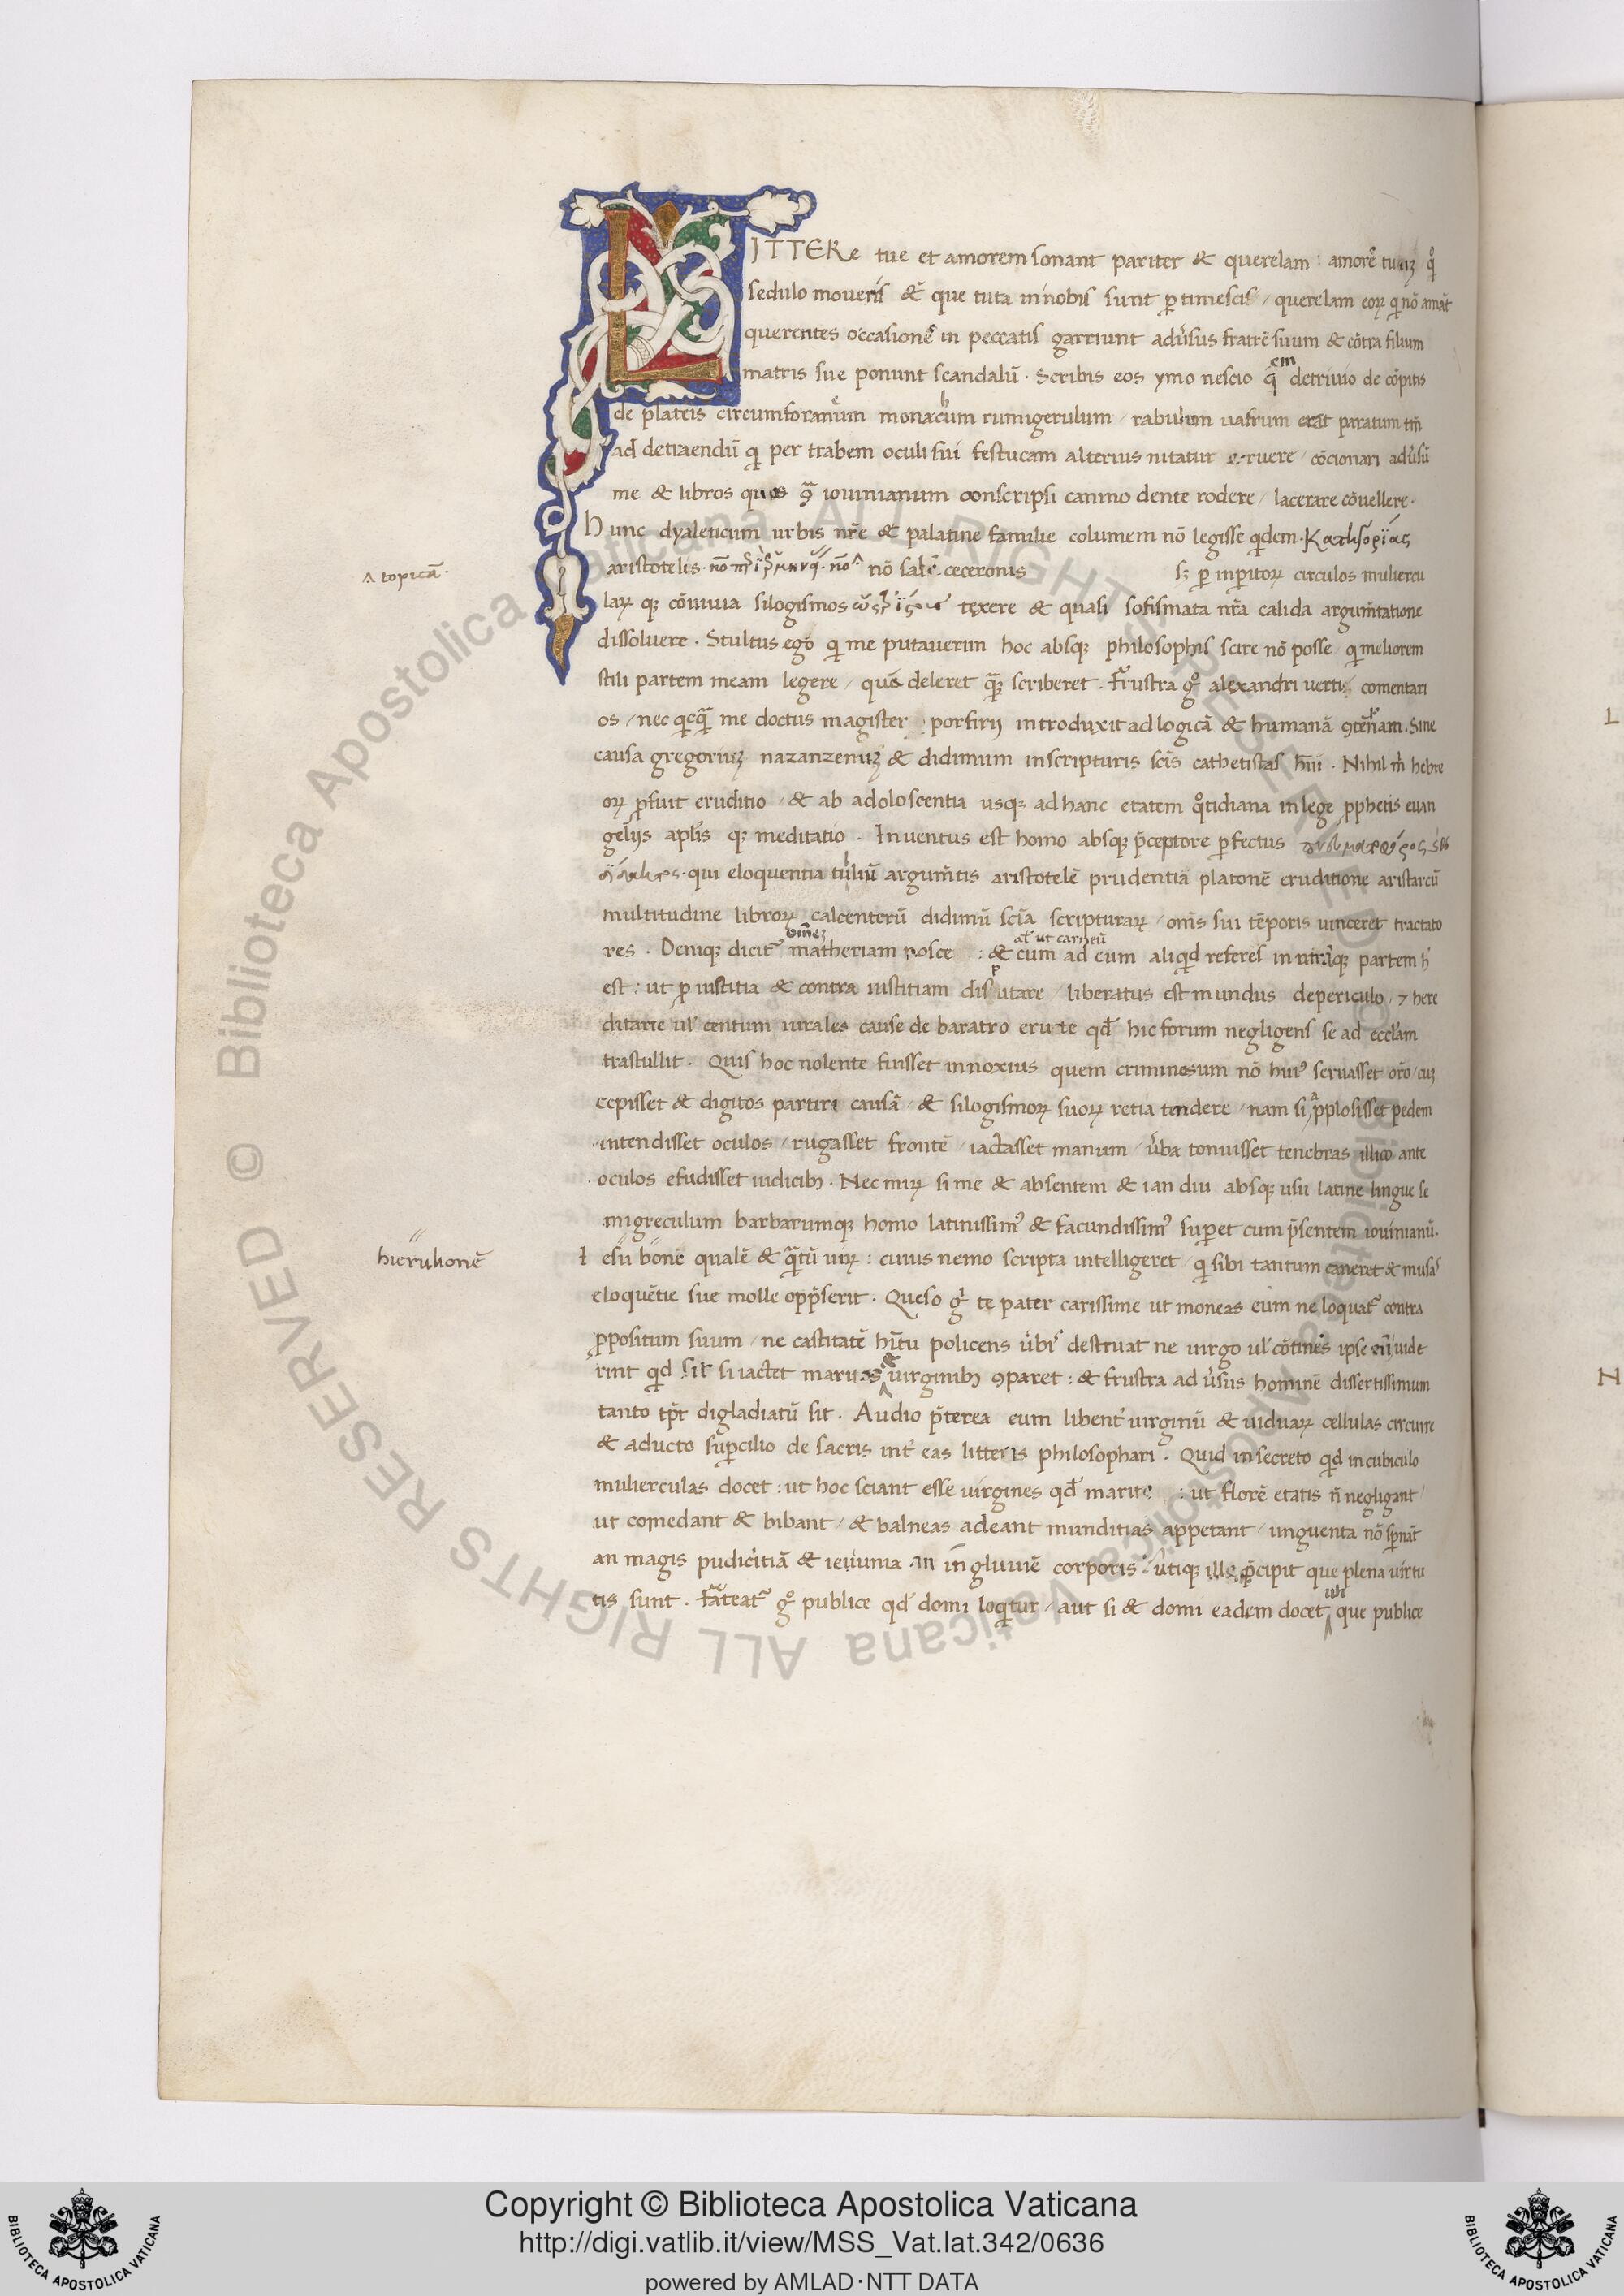 LITTERe tue et amorem sonant pariter & querelam : amorē tuuꝫ qͦ
sedulo moueris & que tuta in nobis sunt ꝑtimescis / querelam eoꝝ qi nō amāt
querentes occasionē in peccatis garriunt adu͛sus fratrē suum & cōtra filium
matris sue ponunt scandalū . Scribis eos ymo nescio q̄em de triuio de cōpitis
de plateis circumforaneum monachum rumigerulum / rabulam uafrum erat paratum tm̄
ad detraendū qi per trabem oculi sui festucam alterius nitatur eruere / cōcionari adu͛sū
me & libros quos ꝯᵃ iouinianum conscripsi canino dente rodere / lacerare cōuellere .
Hunc dyaleticum urbis nr̄e & palatine familie columem nō legisse qidem .
aristotelis . nō nō ceceronis sꝫ ꝑ inꝑitoꝝ circulos muliercu
^ topicā .
laꝝ qꝫ cōuiuia silogismos texere & quasi sofismata nr̄a calida argum̄tatione
dissoluere . Stultus ego qi me putauerim hoc absqꝫ philosophis scire nō posse qi meliorem
stili partem meam legere / que deleret q̄ꝫ scriberet . Frustra gͦ alexandri uerti comentari
os / nec qicq̄ me doctus magister porfirij introduxit ad logicā & humanā . Sine
causa gregoriuꝫ nazanzenuꝫ & didimum in scripturis scīs cathetistas hūi . Nihil m̄ hebre
oꝝ ꝓfuit eruditio & ab adoloscentia usqꝫ ad hanc etatem qͦtidiana in lege ꝓphetis euan
gelijs aplīs qꝫ meditatio . Inuentus est homo absqꝫ p̄ceptore ꝑfectus
qui eloquentia tuliū argum̄tis aristotelē prudentia platonē eruditione aristarcū
multitudine libroꝝ calcenterū didimū scīa scripturaꝝ / om̄s sui tēporis uinceret tractato
res . Deniqꝫ dicit᷑ om̄eꝫ matheriam posce : & al' ut carneū cum ad eum aliqid referes in utrāqꝫ partem h'
est : ut ꝓ iustitia & contra iustitiam disputare / liberatus est mundus de periculo / ⁊ here
ditarie ul' centum uirales cause de baratro erute qđ hic forum negligens se ad eccl'am
trastullit . Quis hoc nolente fuisset innoxius quem criminosum nō hui᷒ seruasset oro / cuꝫ
cepisset & digitos partiri causā / & silogismoꝝ suoꝝ retia tendere / nam si ᵃpplosisset pedem
intendisset oculos / rugasset frontē / iactasset manum / u͛ba tonuisset tenebras illico ante
oculos efudisset iudicibꝫ . Nec miꝝ si me & absentem & ian diu absqꝫ usu latine lingue se
migreculum barbarumqꝫ homo latinissim᷒ & facundissim᷒ suꝑet cum p̄sentem iouinianū .
hierulionē
Iesu bone qualē & q̄ntū uiꝝ : cuius nemo scripta intelligeret / qi sibi tantum caneret & musis
eloquētie sue molle opp̄serit . Queso gͥ te pater carissime ut moneas eum ne loquat᷑ contra
ꝓpositum suum / ne castitatē hītu policens u͛bis destruat ne uirgo ul' cōtinēs ipse eī uide
rint qid sit si iactet maritas & uirginibꝫ ꝯparet : & frustra ad u͛sus hominē dissertissimum
tanto tp̄r digladiatū sit . Audio p̄terea eum libent͛ uirginū & uiduaꝝ cellulas circuire
& aducto suꝑcilio de sacris int͛ eas litteris philosophari . Quid in secreto qid in cubiculo
mulierculas docet : ut hoc sciant esse uirgines qđ marite : ut florē etatis ñ negligant /
ut comedant & bibant / & balneas adeant munditias appetant / unguenta nō sp̄nāt
an magis pudicitiā & ieiunia an ingluuiē corporis . utiqꝫ illa p̄cipit que plena uirtu
tis sunt . Fateat᷑ gͦ publice qđ domi loqitur / aut si & domi eadem docet que publice
L
N
© Biblioteca Apostolica Vaticana ALL RIGHTS RESERVED © Biblioteca Apostolica Vaticana ALL RIGHTS RESERVED
Copyright © Biblioteca Apostolica Vaticana
http://digi.vatlib.it/view/MSS_Vat.lat.342/0636
powered by AMLAD·NTT DATA
BIBLIOTECA APOSTOLICA VATICANA
BIBLIOTECA APOSTOLICA VATICANA